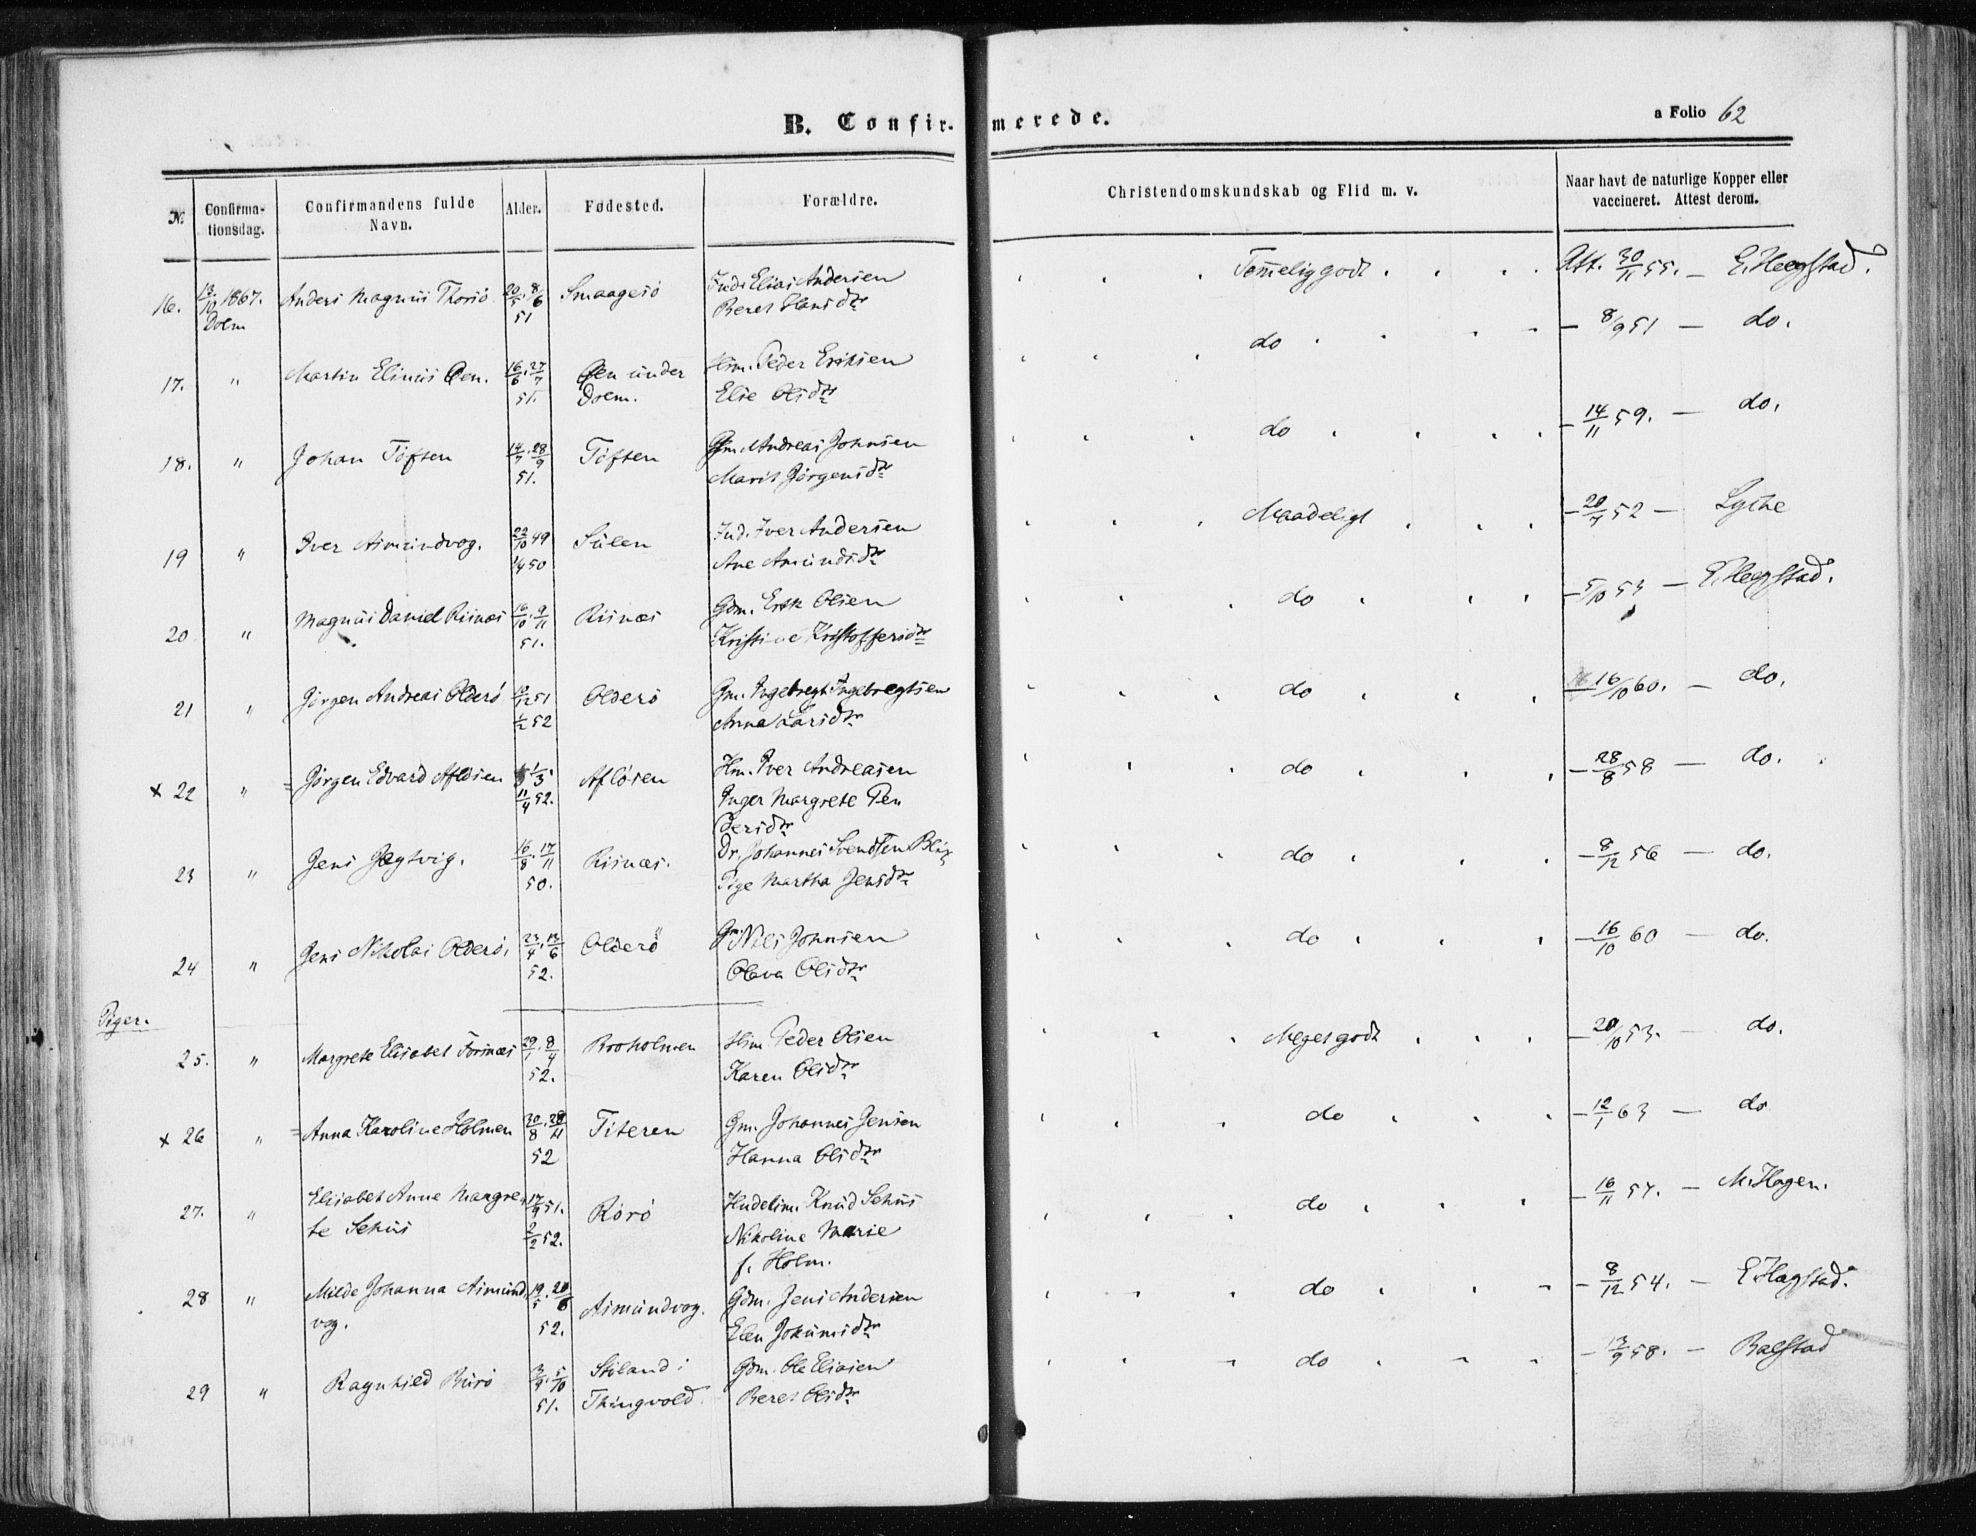 B. Confirmerede.
a Folio 62
No.
Confirmationsdag.
Confirmandens fulde Navn.
Alder.
Fødested.
Forældre.
Christendomskundskab og Flid m. v.
Naar havt de naturlige Kopper eller vaccineret. Attest derom.
16. 13/10 1867. Dolm Anders Magnus Thorsø 20/5. 8/6 51 Smaagesø Inds Elias Andersen
Beret Hansdtr
Temmelig godt Att. 30/11 55. — E. Heegstad.
17. " Martin Elinus Øen. 16/6. 27/7 51. Øen under Dolm. Hsm. Peder Eriksen
Elie Olsdtr
do — 8/9 51 — do.
18. " Johan Töften 14/7. 28/9 51. Töften Gm. Andreas Johnsen
Marit Jørgensdtr
do — 14/11 59. — do.
19 " Iver Aimundvog. 22/10 49 1/4 50 Sülen Ind. Iver Andersen
Ane Amundsdtr
Maadeligt — 20/7 52 — Lythe
20 " Magnus Daniel Risnæs 16/10. 9/11 51. Risnæs Gdm. Erik Olsen
Kristine Kristoffersdtr
do — 5/10 53 — E. Heegstad.
21 " Jørgen Andreas Olderö /12 51 1/2 52 Olderö Gm. Ingebregt Ingebregtsen
Anna Larsdtr
do — 16/10 60. — do.
x 22 " = Jørgen Edvard Aflösen 1/3. 11/4 52. Aflösen Hm. Iver Andreasen
Inger Margrete Pe
dersdtr
do — 28/8 58 — do.
23 " Jens Jægtvig. 16/8. 17/11 50. Risnæs. Dr. Johannes Svendsen
Pige Martha Jensdtr
do — 8/12 56 — do.
24 " Jens Nikolai Olderö, 23/4. 13/6 52. Olderö Gm. Nils Johnsen
Olava Olsdtr
do — 16/10 60 — do.
Piger.
25. " Margrete Elisabet Forsnæs 29/1. 8/4 52. Broholmen Hsm Peder Olsen
Karen Olsdtr
Meget godt — 20/10 53. — do.
x 26 " = Anna Karoline Holmen 30/8. 28/11 52 Titeren Gm. Johannes Jensen
Hanna Olsdtr
do — 12/1 63 — do
27. " Elisabet Anne Margre
te Schüs 17/9 51. 2/2 52. Rörö Knud Schüs
Nikoline Marie
f. Holm.
do — 16/11 54. — M. Hagen.
28 " Milde Johanna Aimund
vog. 19/5. 20/6 52. Aimundvog. Gdm. Jens Andersen
Elen Jokumsdtr
do — 8/12 54. — E. Hegstad.
29 " Ragnhild Burö 3/9. 5/10 51. i
Thingvold. Gdm. Ole Eliasen
Beret Olsdtr
do — 13/9 58. — Balstad